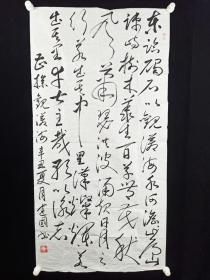 东临碣石以观沧海水何澹澹山岛
竦峙树木丛生百草丰茂秋
风萧瑟洪波涌起日月之
行若出其中星汉灿烂若
出其里幸甚至哉歌以咏志
曹操观沧海辛丑夏月建国书